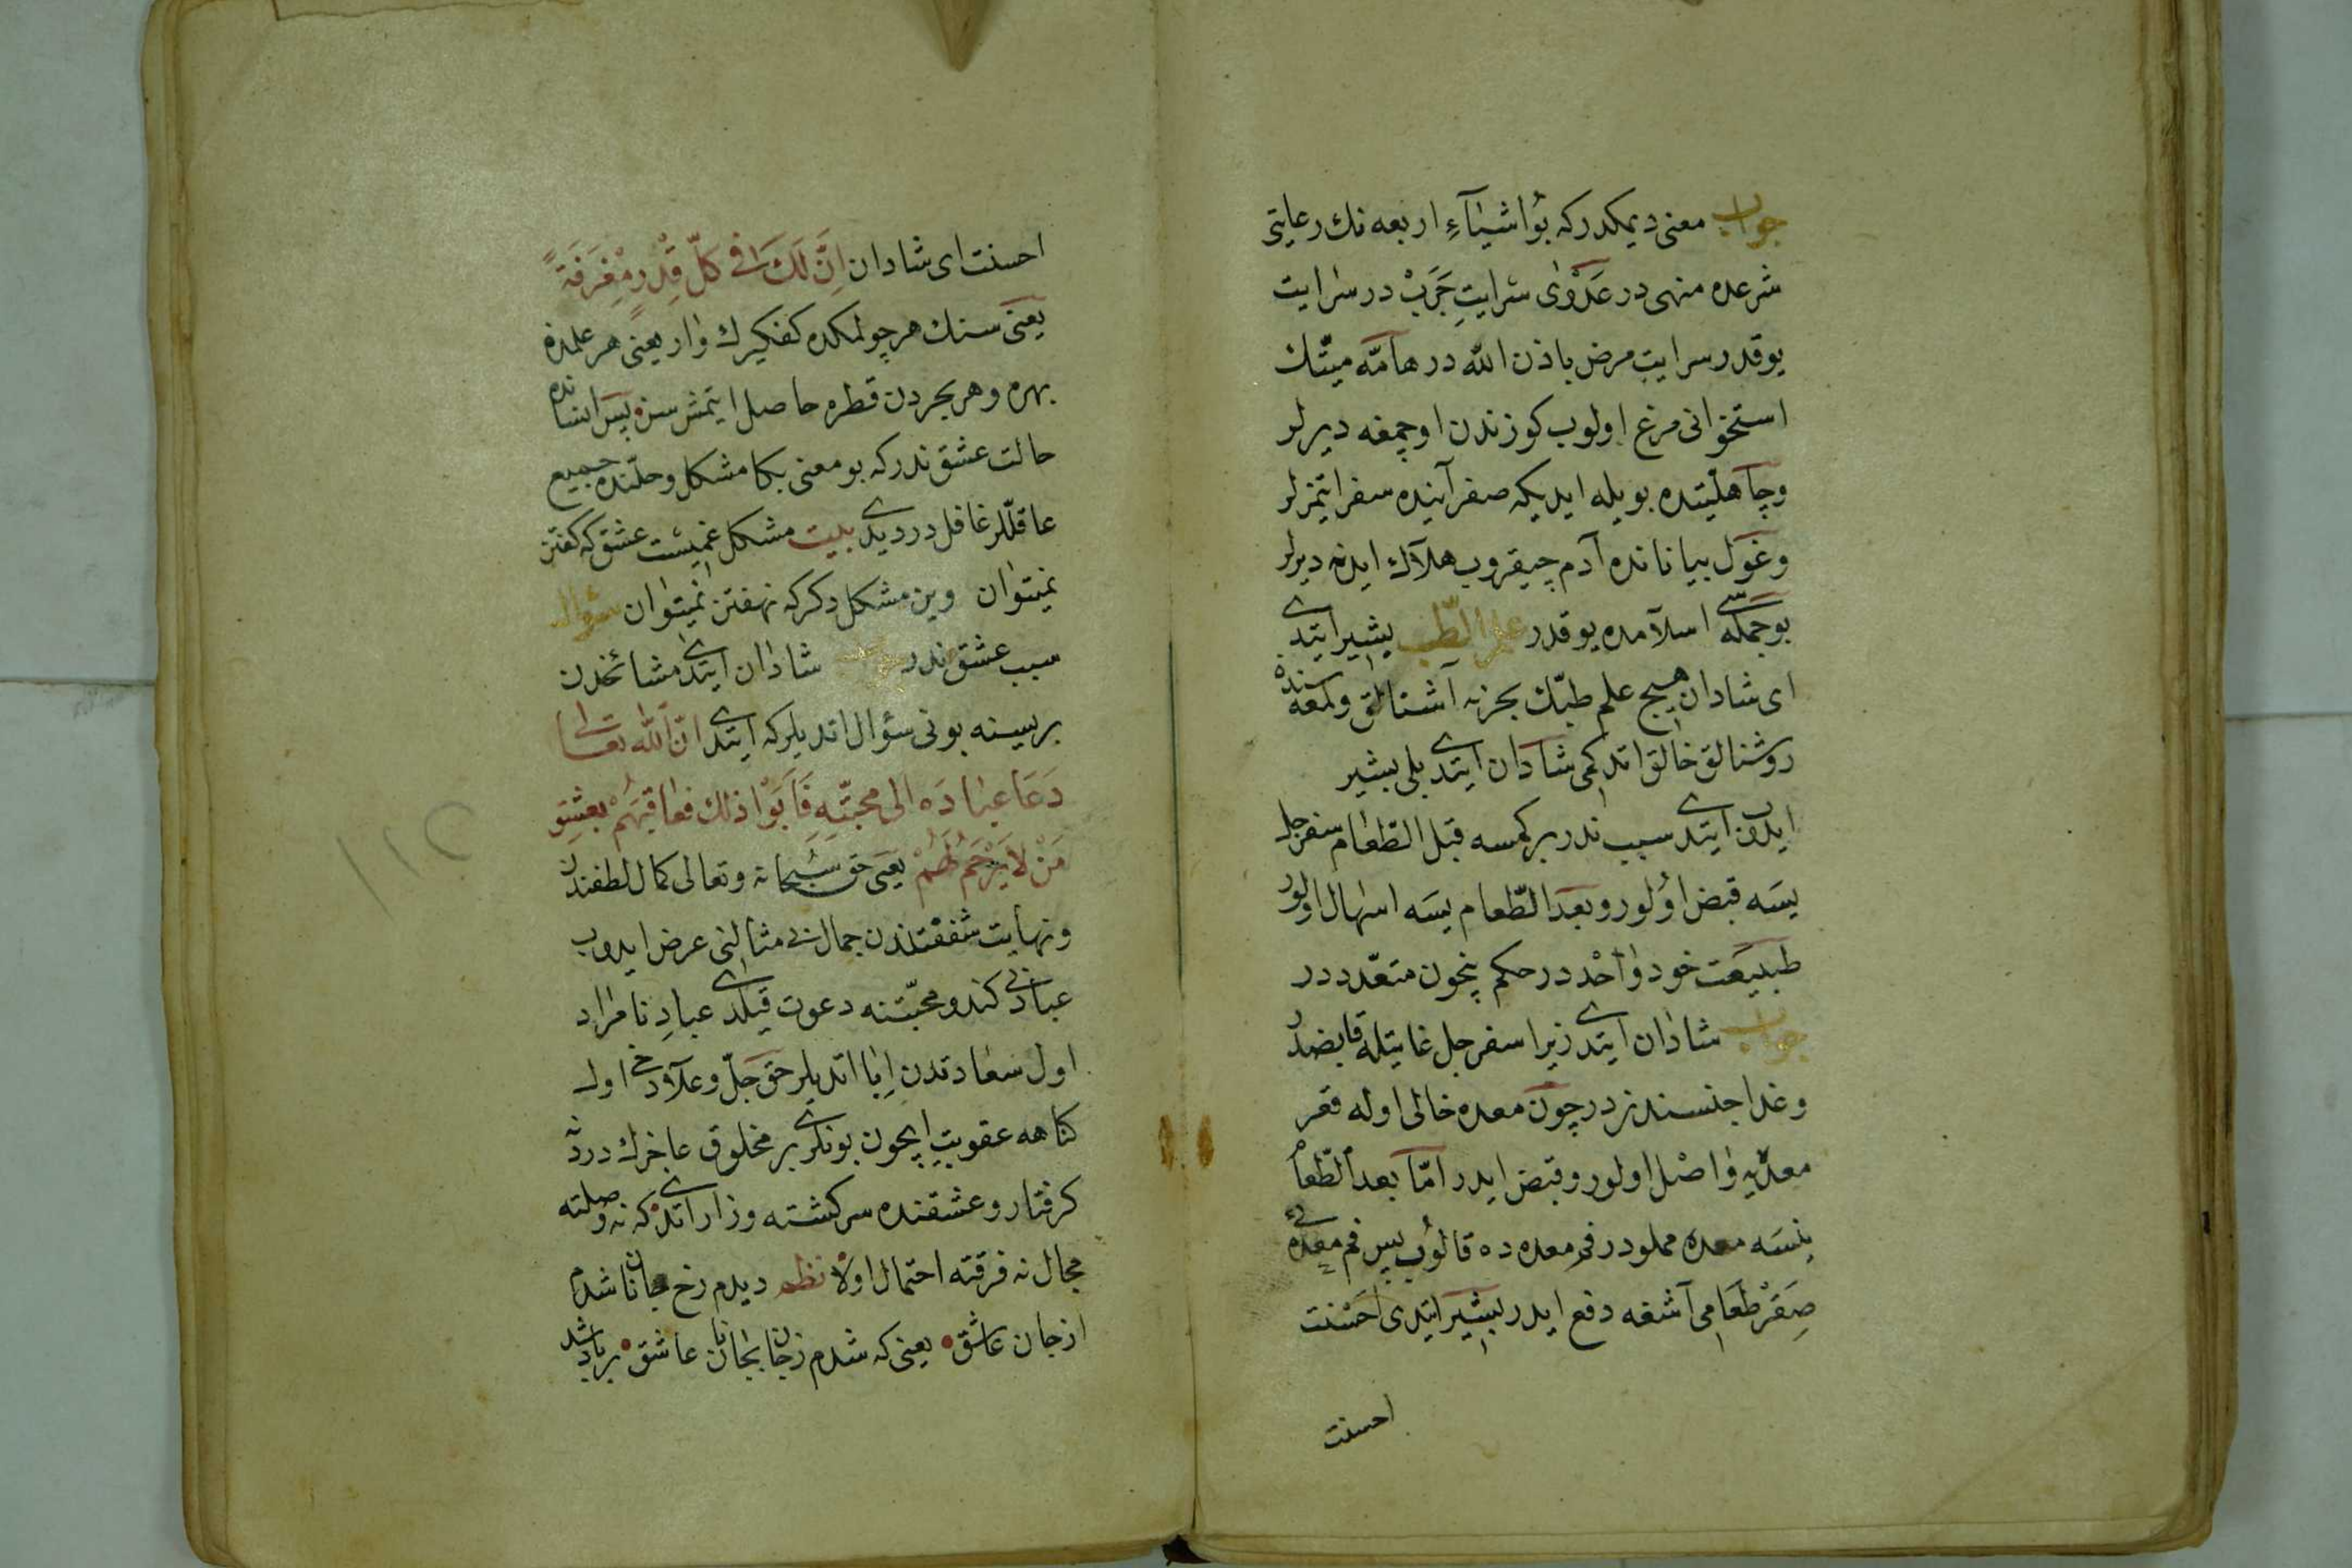 جواب معنی دیمکدر که بو اشیآءِ اربعه نك رعایتی
شرعده منهی در عَدْوٰی سرایتِ جَرَبْ در سرایت
یوقدر سرایت مرض باذن الله در هامّه میّتك
استخوانی مرغ اولوب کوزندن اوچمغه دیرلر
وجاهلیّتده بویله ایدیکه صفر آینده سفر ایتمزلر
وغول بیاباننده آدم چیقروب هلاك ایدنه دیرلر
بوجمله سی اسلامده یوقدر علم الطّب بشیر ایتدی
ای شادان هیچ علم طبّك بحرنه آشنالق ولمعه سنده
روشنالق خالق اتدکمی شادان ایتدی بلی بشیر
ایدون ایتدی سبب ندر برکمسه قبل الطّعام سفرجل
یسَه قبض اوُلور وبعد الطّعام یسَه اسهال اولور
طبیعَت خود وٰاحْد در حکم نچون متعدّد در
جواب شادان ایتدی زیرا سفرجل غایتله قابضدر
وغدا جنسندنردر چون معده خالی اوله قعر
معدیه وٰاصْل اولور وقبض ایدر امّا بعد الطّعام
ینسَه معده مملودر فم معده ده قالوُب پس فم معده یی
صِقَرْ طعَامی آشغه دفع ایدر بشیر ایتدی احَسْنت
احسنت
احسنت ای شادان اِنَّ لَكَ فی کلّ قِدْرٍ مِغْرَفَةً
یعنی سنك هر چولمکده کفکیرك وٰار یعنی هر علمده
بهره وهر بحردن قطره حاصل ایتمشسن پس انسانده
حالت عشق ندر که بو معنی بکا مشکل وحلّنده جمیع
عاقلّلر غافلدر دیدی بیت مشکل غمیست عشق که کفتن
نمیتوان وین مشکل دکر که نهفتن نمیتوان سؤال
سبب عشق ندر جواب شادان ایتدی مشائخدن
بریسینه بونی سؤال اتدیلر که ایتدی انّ الله تعالی
دَعَا عبٰادَه الی محبّتِهِ فَاَبَوْا ذلك فعاقبَهُمْ بعشقِ
مَنْ لاَ یَرْحَمُ لَهُمْ یعنی حق سُبْحانه وتعالی کمال لطفندن
ونهایت شفقتندن جمال بی مثالنی عرض ایدوب
عبادنی کندو محبّتنه دعوت قیلدی عبادِ نامراد
اول سعادتدن اِبا اتدیلر حق جلّ وعلا دخی اول
کناهه عقوبتِ ایچون بونلری بر مخلوق عاجزك دردنه
کرفتار وعشقنده سرکشته وزار اتدی که نه وصلته
مجال نه فرقته احتمال اولا نظم دیدم رخ جانان شدم
ازجان عاشق یعنی که شدم زجان بجانان عاشق بربادشد